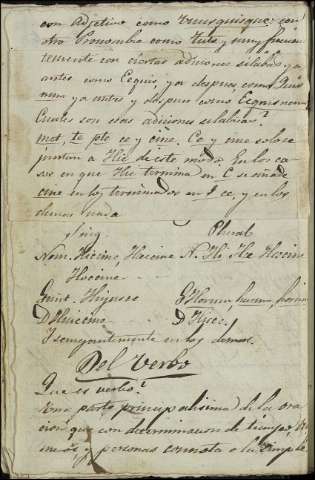 con adjetivo como unusquisque: con
otro Pronombre como tute, y muy frecuen
temente con ciertas adiciones silabicas ya
antes como Ecquis, ya despues como Quis
nam ya antes y despues como Ecquisnam
Cuales son esas adiciones silabicas?
met, te pte ce y cine. Ce y cine solo se
juntan a Hic de este modo. En los ca
sos en que Hic termina en C se añade
cine en los terminados en s ce, y en los
demas nada
Sing. Plural
Nom. Hiccine, Haeccine N. Hi Hae Haecine
Hoccine
Genit. Hujusce G Horum, harum, horum
D Huiccine D Hisce
Y semejantemente en los demas.
Del Verbo
Que es verbo?
Una parte principalisima de la ora
cion que con determinacion de tiempo,
y personas connota o la simple